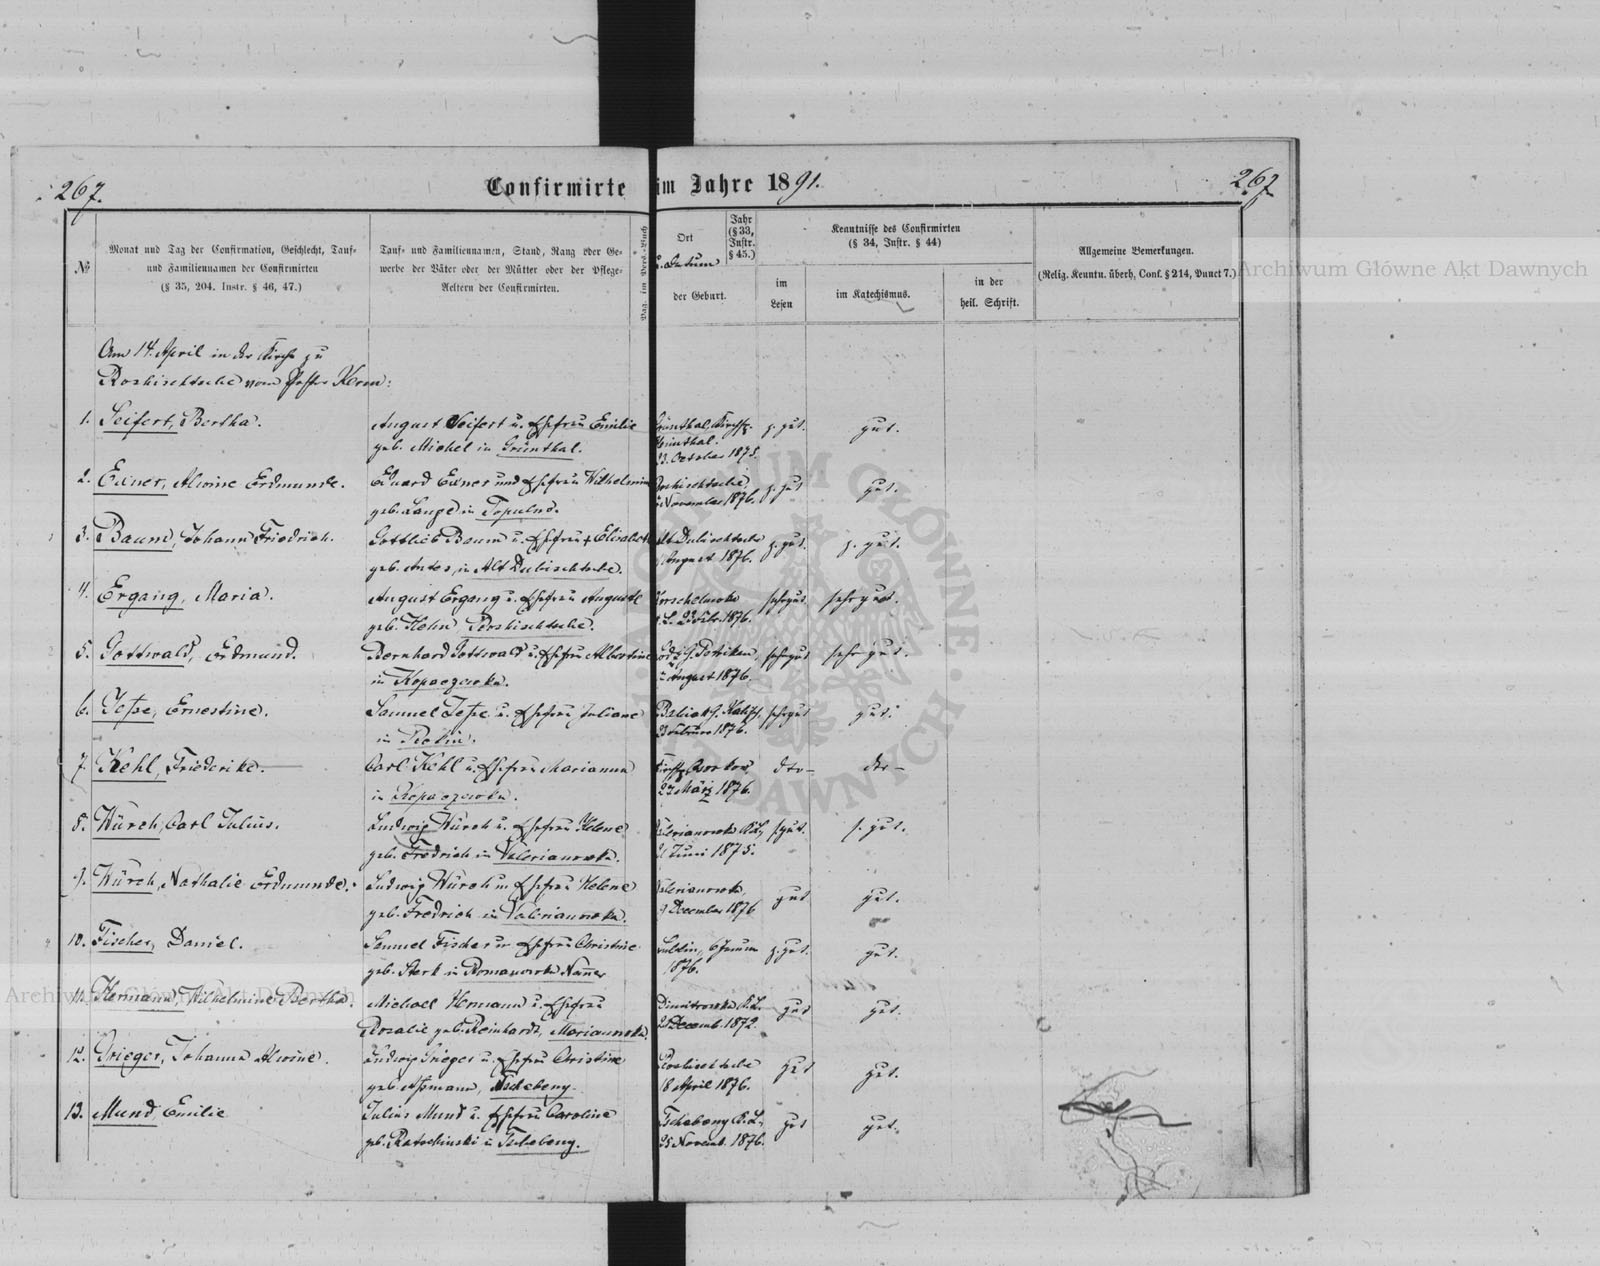 267.
Confirmirte im Jahre 1891.
267
№
Monat und Tag der Confirmation, Geschlecht, Tauf-
und Familiennamen der Confirmirten
(§ 35, 204. Instr. § 46, 47.)
Tauf- und Familiennamen, Stand, Rang oder Ge-
werbe der Väter oder der Mütter oder der Pflege-
Aeltern der Confirmirten.
Pag. im Pers.-Buch
Ort
u. Datum
der Geburt.
Jahr
(§ 33,
Instr.
§ 45.)
Kenntnisse des Confirmirten
(§ 34, Instr. § 44)
im
Lesen
im Katechismus.
in der
heil. Schrift.
Allgemeine Bemerkungen.
(Relig. Kenntn. überh. Conf. § 214, Punct 7.)
Am 14. April in der Kirche zu
Roshischtsche vom Pastor Kern:
1. Seifert, Bertha.
August Seifert u. Ehefrau Emilie
geb. Michel in Grünthal.
Grünthal, Kirchsp.
Grünthal.
23. October 1875.
z. gut.
gut.
2. Exner, Alwine Erdmunde.
Eduard Exner und Ehefrau Wilhelmine
geb. Lange in Topulno.
Roshischtsche,
November 1876.
z. gut
gut.
3. Baum, Johann Friedrich.
Gottlieb Baum u. Ehefrau + Elisabeth
geb. Antes, in Alt Dubischtsche.
Alt Dubischtsche
August 1876.
z. gut.
z. gut.
4. Ergang, Maria.
August Ergang u. Ehefrau Auguste
geb. Hehn Roshischtsche.
1876.
sehr gut
sehr gut.
5. Gottwald, Erdmund.
Bernhard Gottwald u. Ehefrau Albertine
in Kopaczewka.
August 1876.
sehr gut
sehr gut.
6. Jesse, Ernestine.
Samuel Jesse u. Ehefrau Juliane
in
G. Kalisch,
Februar 1876.
sehr gut
gut.
7. Kehl, Friederike.
Carl Kehl u. Ehefrau Marianna
in Kopaczewka.
27 März 1876.
dto –
dto –
8. Würch, Carl Julius.
Ludwig Würch u. Ehefrau Helene
geb. Fredrich in Valerianowka.
Valerianowka K. L.,
Juni 1875.
s. gut.
s. gut.
9. Würch, Nathalie Erdmunde.
Ludwig Würch u. Ehefrau Helene
geb. Fredrich in Valerianowka.
Valerianowka,
9 December 1876
gut
gut.
10. Fischer, Daniel.
Samuel Fischer u. Ehefrau Christine
geb. Sterk in Romanowka
Lublin, 6 Januar
1876.
z. gut.
gut.
11. Hermann, Wilhelmine Bertha.
Michael Hermann u. Ehefrau
Rosalie geb. Reinhardt, Marianowka.
Dimitrowka K. L.
Decemb. 1872.
gut
gut.
12. Grieger, Johanna Alwine.
Ludwig Grieger u. Ehefrau Christine
geb. Assmann, Tschebeny.
Roshischtsche
8 April 1876.
gut
gut.
13. Mund, Emilie
Julius Mund u. Ehefrau Caroline
geb. Ratschinski in Tschebeny.
Tschebeny K. L.,
25 Novemb. 1876.
gut
gut.
Archiwum Główne Akt Dawnych
Archiwum Główne Akt Dawnych
ARCHIWUM GŁÓWNE AKT DAWNYCH